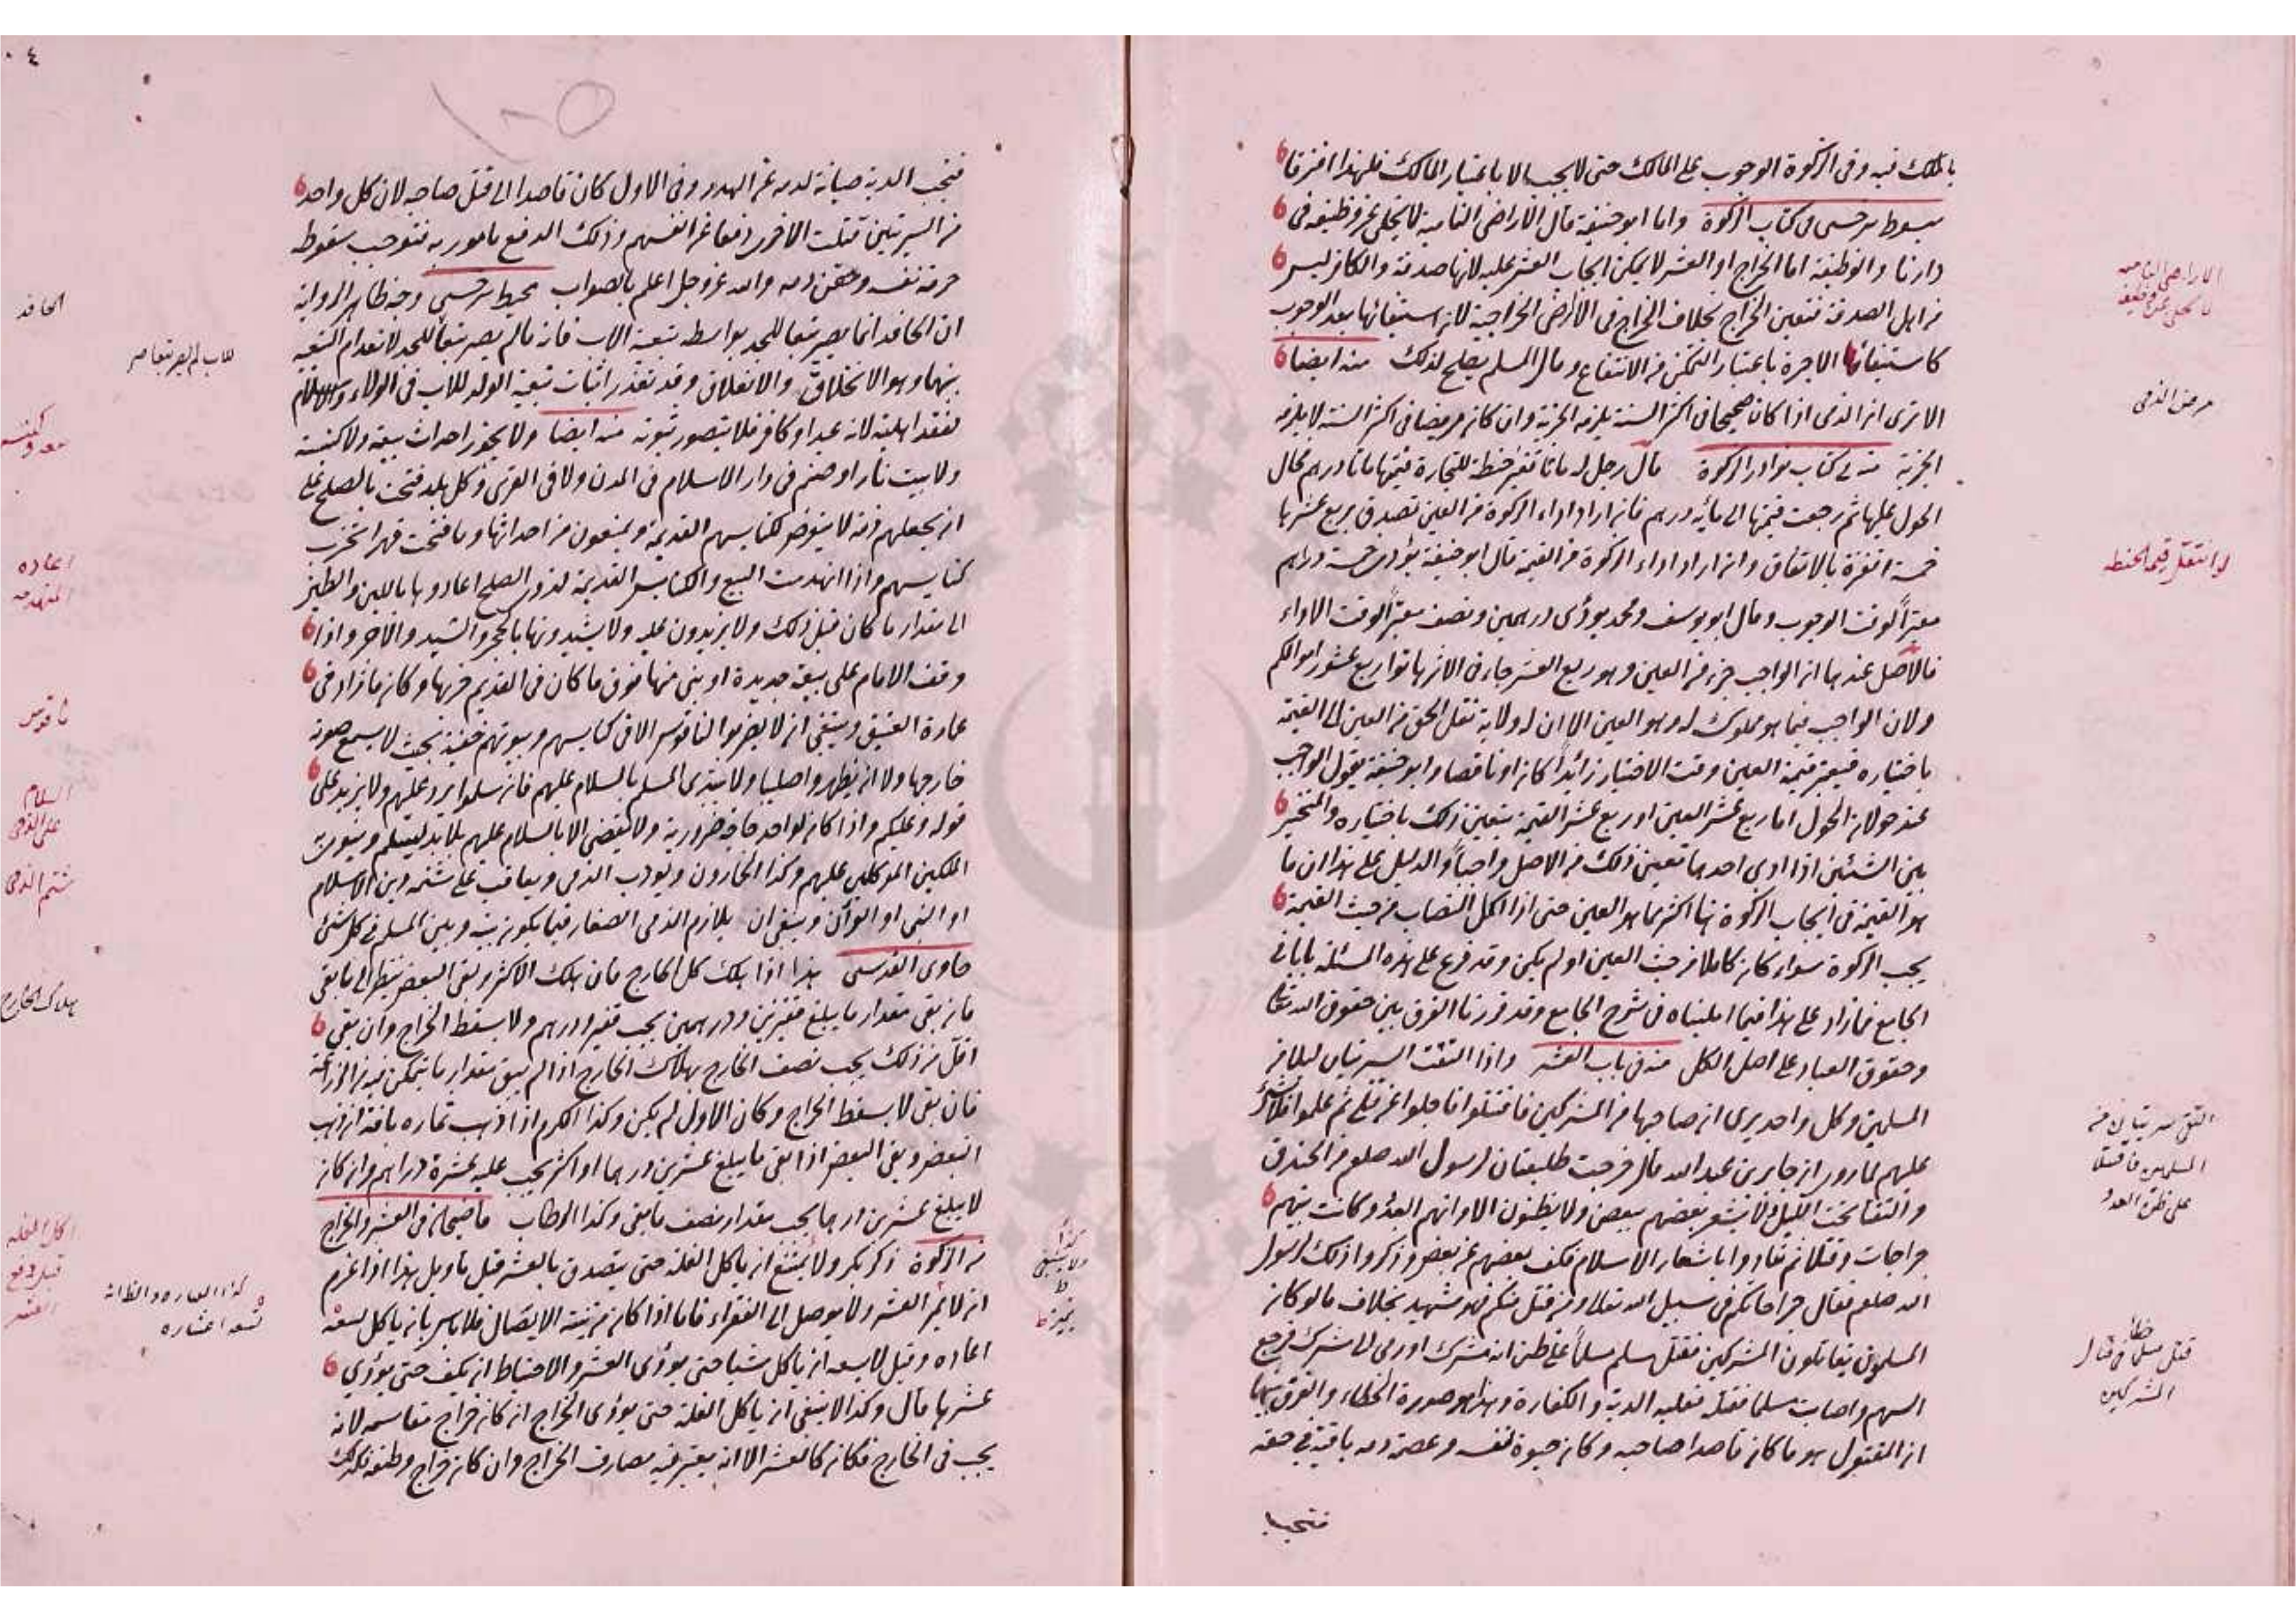 بالملك فيه وفى الزكوة الوجوب على المالك حتى لا يجب الا باعتبار المالك فلهذا افترقا
مبسوط سرخسى فى كتاب الزكوة واما ابو حنيفة قال الاراضى النامية لا تخلى عن وظيفة فى
دارنا والوظيفة اما الخراج او العشر لا يمكن ايجاب العشر عليه لانها صدقة والكافر ليس
من اهل الصدقة فتعين الخراج بخلاف الخراج فى الاراضى الخراجية لان استيفائها بعد الوجوب
كاستيفاء الاجرة باعتبار التمكن من الانتفاع ومال المسلم يصلح لذلك منه ايضا
الا ترى ان الذمى اذا كان صحيحا فى اكثر السنة يلزمه الجزية وان كان مريضا فى اكثر السنة لا يلزمه
الجزية منه فى كتاب نوادر الزكوة قال رجل له مائتا قفيز حنطة للتجارة قيمتها مائتا درهم فحال
الحول عليها ثم رجعت قيمتها الى مائة درهم فان اراد اداء الزكوة من العين تصدق بربع عشرها
خمسة اقفزة بالاتفاق وان اراد اداء الزكوة من القيمة قال ابو حنيفة يؤدى خمسة دراهم
معتبراً لوقت الوجوب وقال ابو يوسف ومحمد يؤدى درهمين ونصف معتبراً لوقت الاداء
فالاصل عندهما ان الواجب جزء من العين وهو ربع العشر جاء فى الاثر هاتوا ربع عشور اموالكم
ولان الواجب فيما هو مملوك له وهو العين الا ان له ولاية نقل الحق من العين الى القيمة
باختياره فيعتبر قيمة العين وقت الاختيار زائداً كان او ناقصا وابو حنيفة يقول الواجب
عند حولان الحول اما ربع عشر العين او ربع عشر القيمة يتعين ذلك باختياره والمتخير
بين الشئين اذا ادى احدهما تعين ذلك من الاصل واجباً والدليل على هذا ان ما
هو القيمة فى ايجاب الزكوة هنا اكثر مما هو العين حتى اذا كمل النصاب من حيث القيمة
يجب الزكوة سواء كان كاملا من حيث العين او لم يكن وقد فرع على هذه المسئلة بابا فى
الجامع فما زاد على هذا فيما امليناه فى شرح الجامع وقد قررنا الفرق بين حقوق الله تعالى
وحقوق العباد على اصل الكل منه فى باب العشر واذا التقت السريتان ليلا من
المسلمين وكل واحد يرى ان صاحبها من المشركين فاقتتلوا فاجلوا عن قتلى ثم علموا فلا شئ
عليهم لما روى ان جابر بن عبد الله قال خرجت طليعتان لرسول الله صلعم من الخندق
والتقتا تحت الليل لا يشعر بعضهم ببعض ولا يظنون الا انهم العدو وكانت بينهم
جراحات وقتلا ثم تنادوا باشعار الاسلام فكف بعضهم عن بعض وذكروا ذلك لرسول
الله صلعم فقال جراحاتكم فى سبيل الله تعالى ومن قتل منكم فهو شهيد بخلاف ما لو كان
المسلمون يقاتلون المشركين فقتل مسلم مسلماً على ظن انه مشرك او رمى الى مشرك فرجع
السهم واصاب مسلما فقتله فعليه الدية والكفارة وهذا هو صورة الخطاء والفرق بينهما
ان المقتول هو ما كان قاصدا صاحبه وكان حيوة نفسه وعصمة دمه باقية فى حقه
الاراضى النامية
لا تخلى عن وظيفة
مرض الذمى
لو انتقل قيمة الحنطة
التقى سريتان من
المسلمين فاقتتلا
على ظن العدو
خطأ
قتل مسلم فى قتال
المشركين
فتجب الدية صيانة لدمه عن الهدر وفى الاول كان قاصدا الى قتل صاحبه لان كل واحد
من السريتين قتلت الاخرى دفعا عن انفسهم وذلك الدفع مامور به فتوجب سقوط
حرمة نفسه وحقن دمه والله عز وجل اعلم بالصواب محيط سرخسى وجه ظاهر الرواية
ان الحافد انما يصير تبعا للجد بواسطة تبعية الاب فانه ما لم يصر تبعاً للجد لانعدام التبعية
بينهما وهو الانخلاق والانفلاق وقد تعذر اثبات تبعية الولد للاب فى الولاء والاسلام
لفقد اهليته لانه عبد او كافر فلا يتصور ثبوته منه ايضا ولا يجوز احداث بيعة ولا كنيسة
ولا بيت نار او صنم فى دار الاسلام فى المدن ولا فى القرى وكل بلد فتحت بالصلح على
ان يجعلهم ذمة لا يتعرض لكنايسهم القديمة ويمنعون من احداثها وما فتحت قهرا تخرب
كنايسهم واذا انهدمت البيع والكنايس القديمة لذوى الصلح اعادوها باللبن والطين
الى مقدار ما كان قبل ذلك ولا يزيدون عليه ولا يشيدونها بالحجر والشيد والآجر واذا
وقف الامام على بيعة جديدة او بنى منها فوق ما كان فى القديم خربها وكان ما زاد فى
عمارة العتيق وينبغى ان لا يضربوا الناقوس الا فى كنايسهم وبيوتهم خفية بحيث لا يسمع صوته
خارجها ولا ان يظهروا صليبا ولا يبتدى المسلم بالسلام عليهم فان سلموا يرد عليهم ولا يزيد على
قوله وعليكم واذا كان لواحد حاجة ضرورية ولا تقضى الا بالسلام عليهم فلا بد ليسلم وينوى
الملكين الموكلين عليهم وكذا المجارون ويؤدب الذمى ويعاقب على شتمه دين الاسلام
او النبى او القرآن وينبغى ان يلازم الذمى الصغار فيما يكون بينه وبين المسلم فى كل شئ
حاوى القدسى هذا اذا هلك كل الخارج فان هلك الاكثر وبقى البعض ينظر الى ما بقى
فان بقى مقدار ما يبلغ قفيزين ودرهمين يجب قفيز ودرهم ولا يسقط الخراج وان بقى
اقل من ذلك يجب نصف الخارج بهلاك الخارج اذا لم يبق مقدار ما يتمكن فيه من الزراعة
فان بقى لا يسقط الخراج وكان الاول لم يكن وكذا الكرم اذا ذهب ثماره بافة ان ذهب
البعض وبقى البعض اذا بقى ما يبلغ عشرين درهما او اكثر يجب عليه عشرة دراهم وان كان
لا يبلغ عشرين درهما يجب مقدار نصف ما بقى وكذا الرطاب قاضيخان فى العشر والخراج
من الزكوة ذكر بكر ولا يمتنع ان ياكل الغلة حتى يتصدق بالعشر قيل تاويل هذا اذا عزم
ان لا يتم العشر ولا يوصل الى الفقراء فاما اذا كان من نيته الايصال فلا باس بان ياكل تسعة
اعشاره وقيل لا يسعه ان ياكل شيا حتى يؤدى العشر والاحتياط ان يكف حتى يؤدى
عشرها قال وكذا لا ينبغى ان ياكل الغلة حتى يؤدى الخراج ان كان خراج مقاسمة لانه
يجب فى الخارج فكان كالعشر الا انه يعتبر فيه مصارف الخراج وان كان خراج وظيفة فكذلك
الحافد
كنيسة
اعادة
المنهدمة
ناقوس
السلام
على الذمى
شتم الذمى
هلاك الخارج
اكل الغلة
قبل دفع
العشر
كذا العبارة والظاهر
تسعة اعشاره